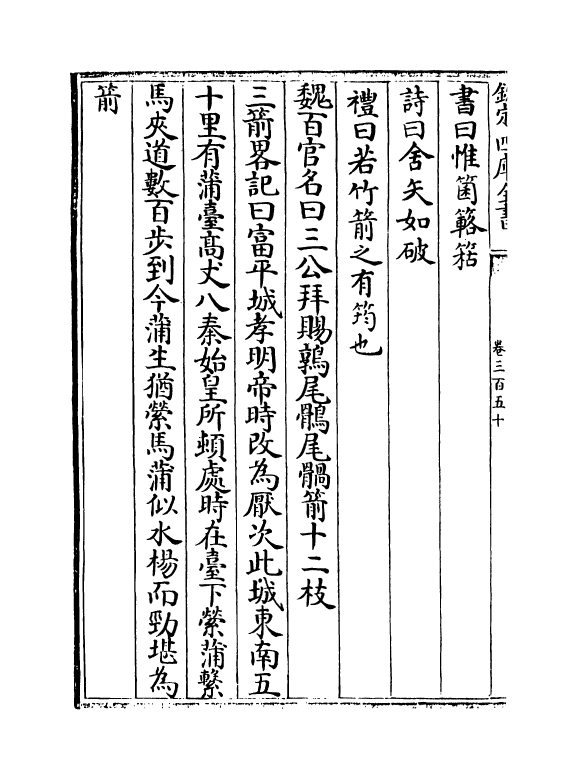 欽定四庫全書
卷三百五十
書曰惟箘簵
詩曰舍矢如破
禮曰若竹箭之有筠也
魏百官名曰三公拜賜鶉尾鶻尾髇箭十二枝
三箭畧記曰富平城孝明帝時改為厭次此城東南五
十里有蒲臺髙丈八秦始皇所頓處時在臺下縈蒲繫
馬夾道數百步到今蒲生猶縈馬蒲似水楊而勁堪為
箭